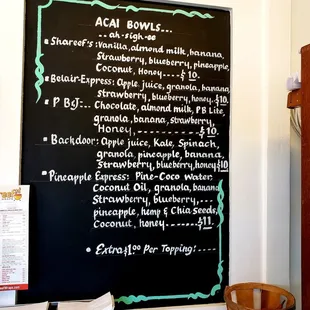 ACAI BOWLS...
-- ah-sigh-ee
Shareef's: Vanilla, almond milk, banana,
Strawberry, blueberry, pineapple,
Coconut, Honey ---- $10.
Belair-Express: Apple juice, granola, banana,
Strawberry, blueberry, honey. $10.
P B&J:-- Chocolate, almond milk, PB Lite,
granola, banana, strawberry,
Honey, --------- $10.
Backdoor: Apple juice, Kale, Spinach,
granola, pineapple, banana,
Strawberry, blueberry, honey $10
Pineapple Express: Pine-Coco Water,
Coconut Oil, granola, banana
Strawberry, blueberry, ---
pineapple, hemp & Chia seeds,
Coconut, honey ------ $11.
Extra $1.00 Per Topping: ----